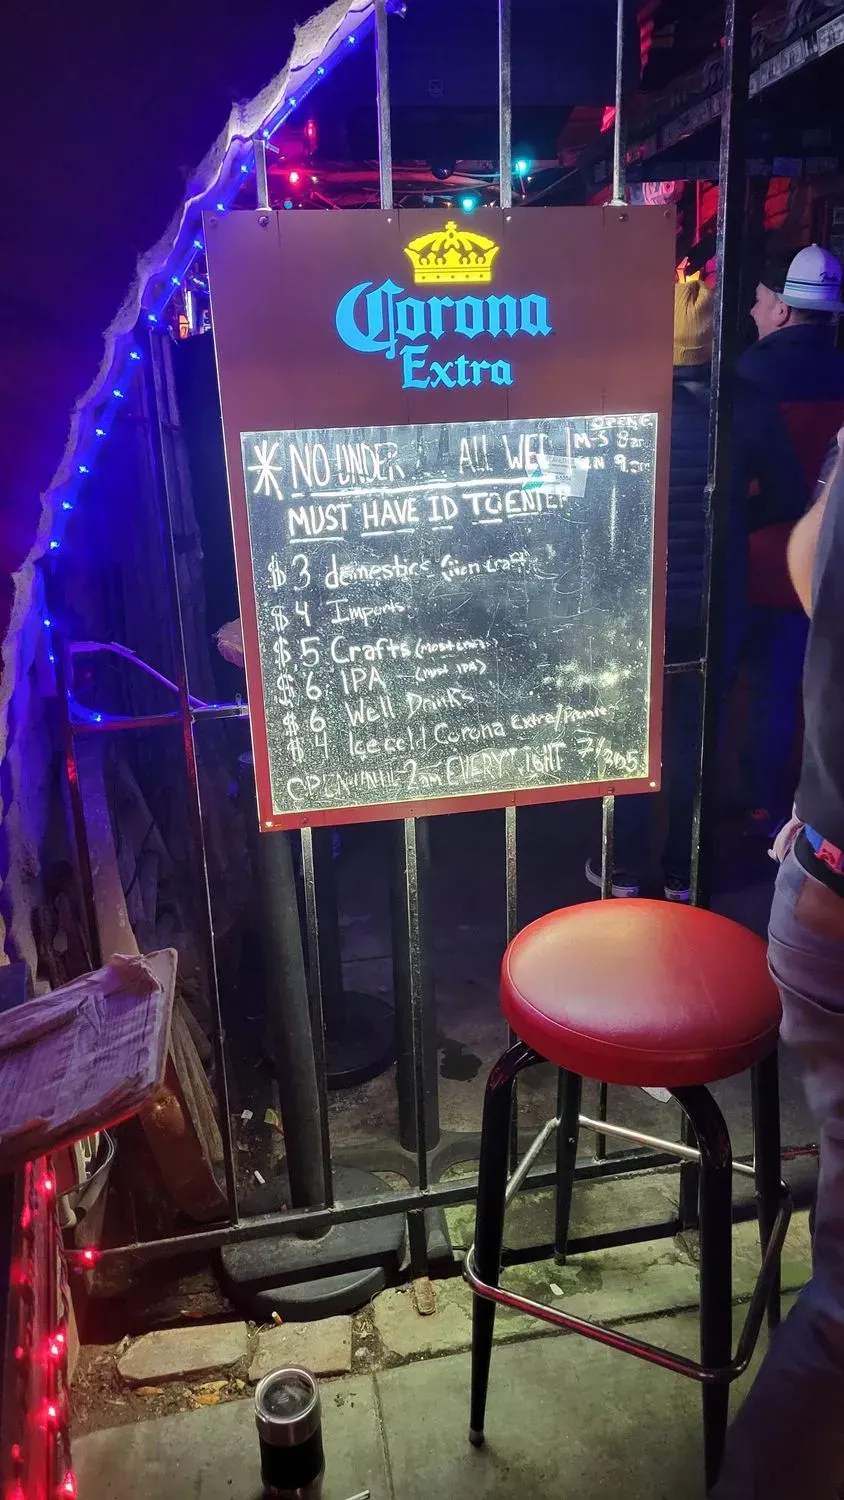 Corona
Extra
OPENS
M-S 8am
9am
* NO UNDER ALL WEEK
MUST HAVE ID TO ENTER
$3 domestics (non craft)
$4 Imports
$5 Crafts (most crafts)
$6 IPA (most IPA)
$6 Well Drinks
$4 Ice cold Corona Extra/Premier
OPEN UNTIL 2am EVERY NIGHT 7/365